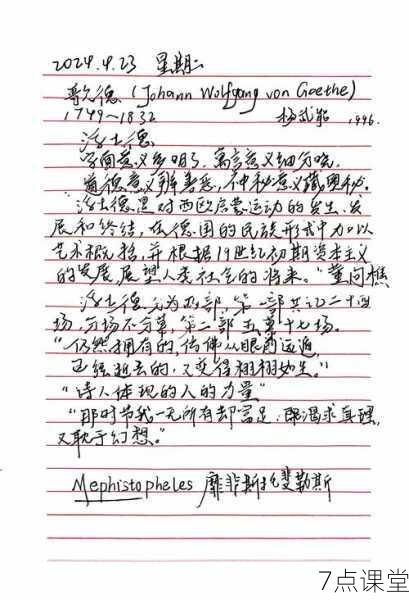 2024.4.23 星期二
歌德 (Johann Wolfgang von Goethe)
1749~1832 杨武能 1996.
浮士德
字面意义多明了，寓言意义细分晓，
道德意义辨善恶，神秘意义藏奥秘。
"浮士德是对西欧启蒙运动的发生、发
展和终结，在德国的民族形式中加以
艺术概括，并根据19世纪初期资本主义
的发展，展望人类社会的将来。"董问樵
浮士德分为两部，第一部共二十四
场，分场不分幕，第二部五幕二十七场。
"仍然拥有的，仿佛从眼前远遁，
已经逝去的，又变得栩栩如生。"
"诗人体现的人的力量"
"那时节我一无所有却富足：即渴求真理，
又耽于幻想。"
Mephistopheles 靡非斯托斐勒斯
7点课堂